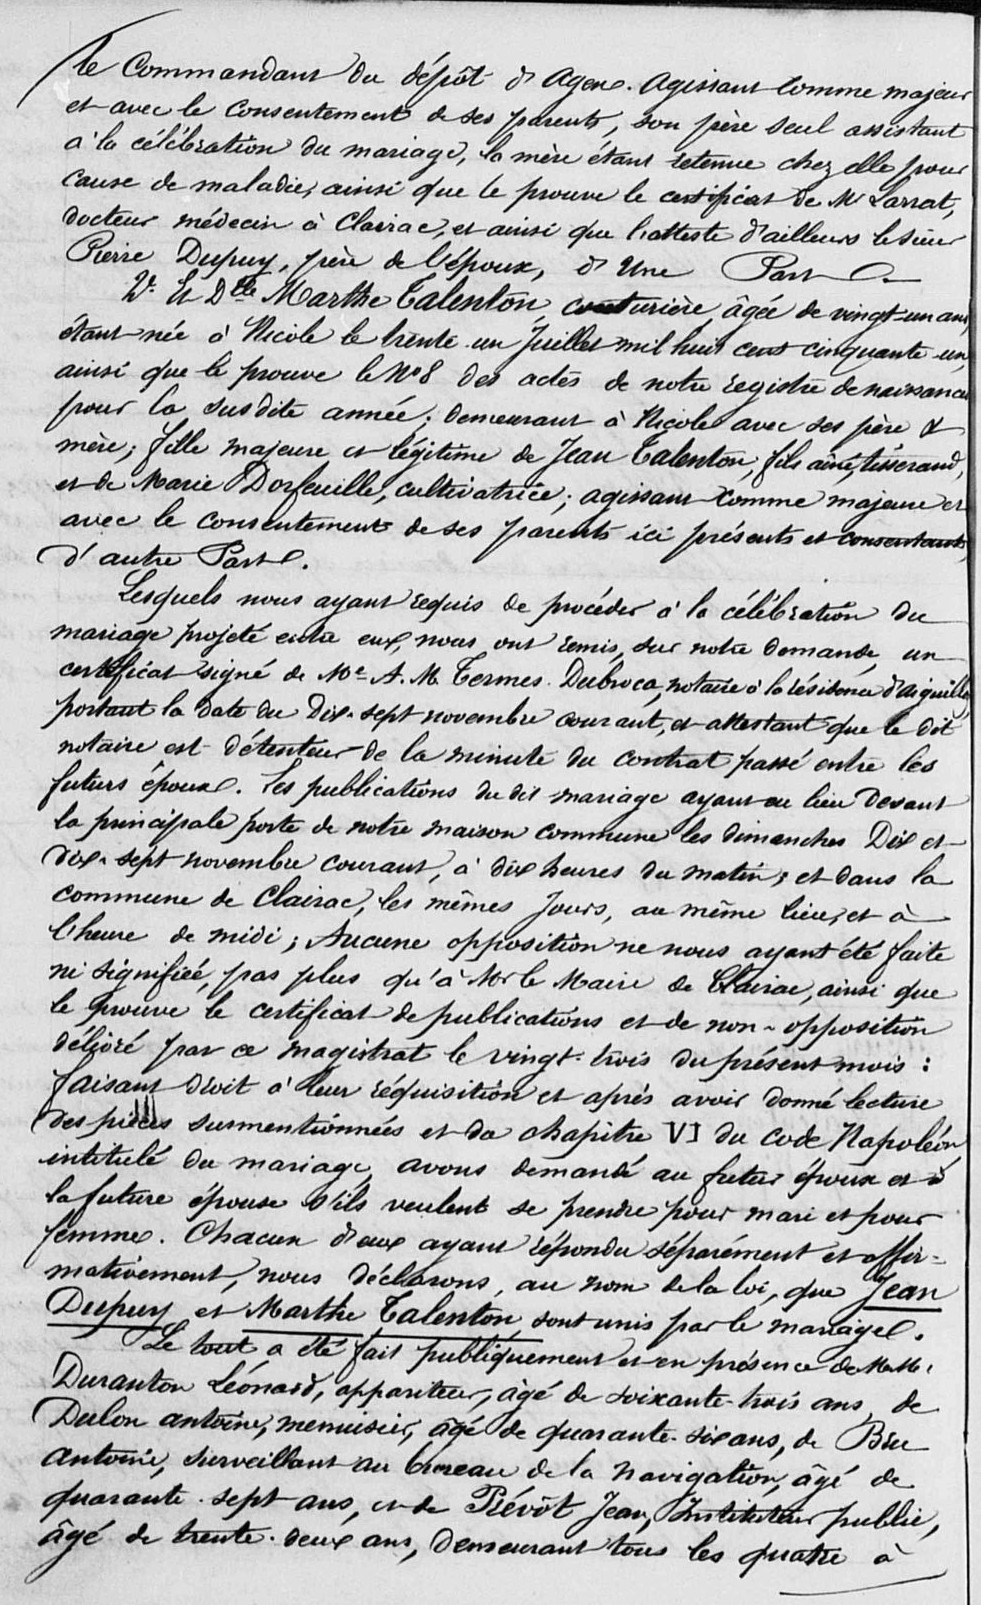 le Commandant du dépôt d'Agen. Agissant comme majeur
et avec le consentement de ses parents, son père seul assistant
à la célébration du mariage, la mère étant retenue chez elle pour
cause de maladie, ainsi que le prouve le certificat de Mr Larrat,
docteur médecin à Clairac, et ainsi que l'atteste d'ailleurs le sieur
Pierre Dupuy, père de l'époux, d'Une Part
2° Et Dlle Marthe Talenton, couturière, âgée de vingt-un ans,
étant née à Nicole le trente-un Juillet mil huit cent cinquante-un,
ainsi que le prouve le No 8 des actes de notre registre de naissances
pour la susdite année; demeurant à Nicole avec ses père &
mère; fille majeure et légitime de Jean Talenton, fils aîné, tisserand,
et de Marie Dorfeuille, cultivatrice; agissant comme majeure et
avec le consentement de ses parents ici présents et consentants,
d'autre Part.
Lesquels nous ayant requis de procéder à la célébration du
mariage projeté entre eux, nous ont remis, sur notre demande, un
certificat signé de Me A. M. Termes-Dubroca, notaire à la résidence d'aiguillon
portant la date du Dix-sept novembre courant, et attestant que le dit
notaire est détenteur de la minute du contrat passé entre les
futurs époux. Les publications du dit mariage ayant eu lieu devant
la principale porte de notre maison commune les dimanches Dix et
dix-sept novembre courant, à dix heures du matin; et dans la
commune de Clairac, les mêmes Jours, au même lieu, et à
l'heure de midi; Aucune opposition ne nous ayant été faite
ni signifiée, pas plus qu'à Mr le Maire de Clairac, ainsi que
le prouve le certificat de publications et de non-opposition
délivré par ce magistrat le vingt-trois du présent mois:
faisant droit à leur réquisition et après avoir donné lecture
des pièces surmentionnées et du chapitre VI du code Napoléon,
intitulé du mariage, avons demandé au futur époux et à
la future épouse s'ils veulent se prendre pour mari et pour
femme. Chacun d'eux ayant répondu séparément et affir-
mativement, nous déclarons, au nom de la loi, que Jean
Dupuy et Marthe Talenton sont unis par le mariage.
Le tout a été fait publiquement et en présence de M.M.
Duranton Léonard, appariteur, âgé de soixante-trois ans, de
Dulon antoine, menuisier, âgé de quarante-six ans, de Bru
Antoine, surveillant au bureau de la navigation, âgé de
quarante-sept ans, et de Prévôt Jean, Instituteur public,
âgé de trente-deux ans, demeurant tous les quatre à